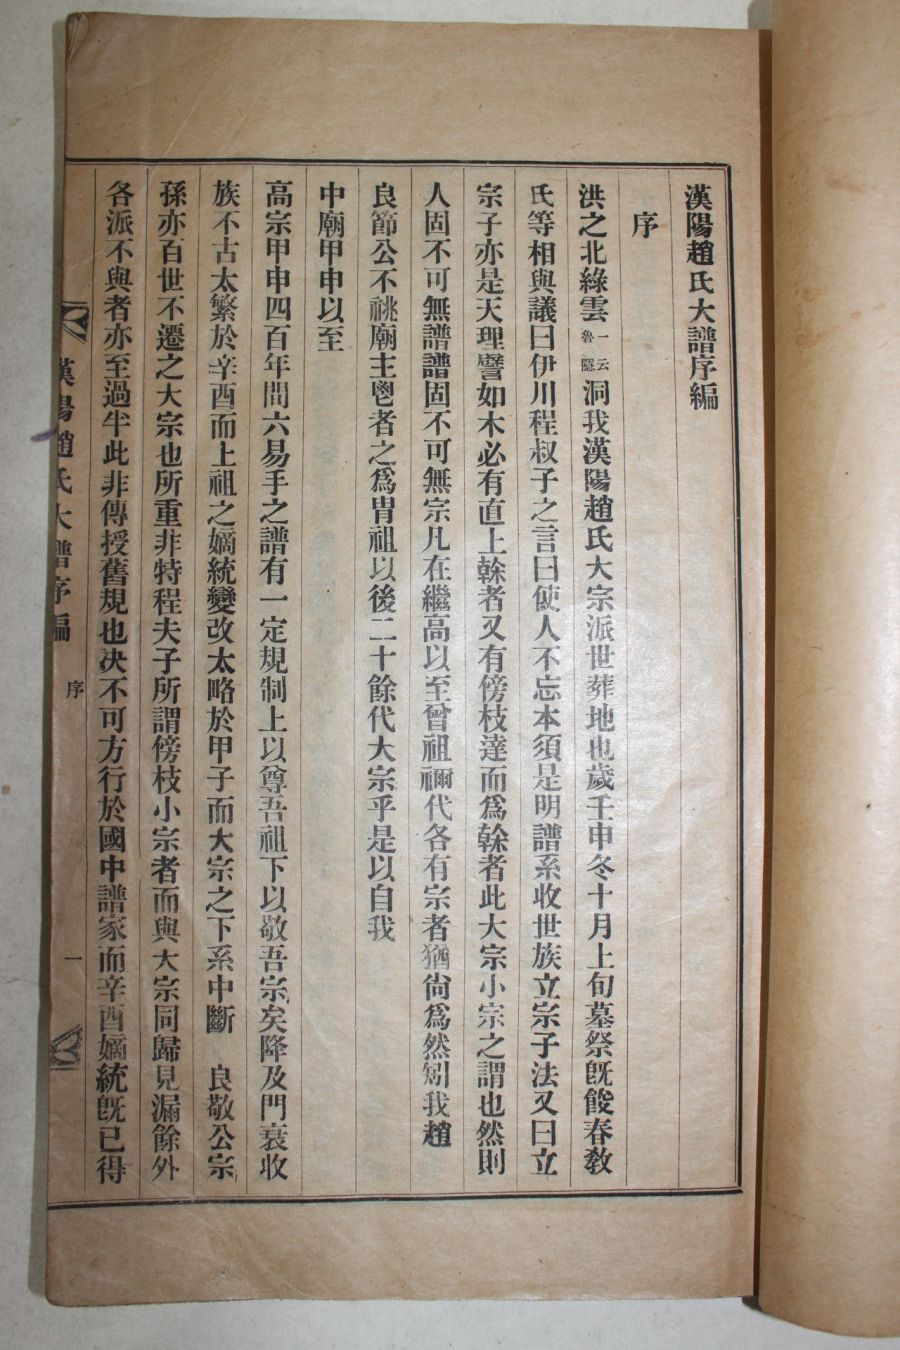 漢陽趙氏大譜序編
序
洪之北綠雲一云魯隱洞我漢陽趙氏大宗派世葬地也歲壬申冬十月上旬墓祭旣餕春敎
氏等相與議曰伊川程叔子之言曰使人不忘本須是明譜系收世族立宗子法又曰立
宗子亦是天理譬如木必有直上榦者又有傍枝達而爲榦者此大宗小宗之謂也然則
人固不可無譜譜固不可無宗凡在繼高以至曾祖禰代各有宗者猶尙爲然矧我趙
良節公不祧廟主鬯者之爲胄祖以後二十餘代大宗乎是以自我
中廟甲申以至
高宗甲申四百年間六易手之譜有一定規制上以尊吾祖下以敬吾宗矣降及門衰收
族不古太繁於辛酉而上祖之嫡統變改太略於甲子而大宗之下系中斷 良敬公宗
孫亦百世不遷之大宗也所重非特程夫子所謂傍枝小宗者而與大宗同歸見漏餘外
各派不與者亦至過半此非傳授舊規也决不可方行於國中譜家而辛酉嫡統旣已得
漢陽趙氏大譜序編
序
一